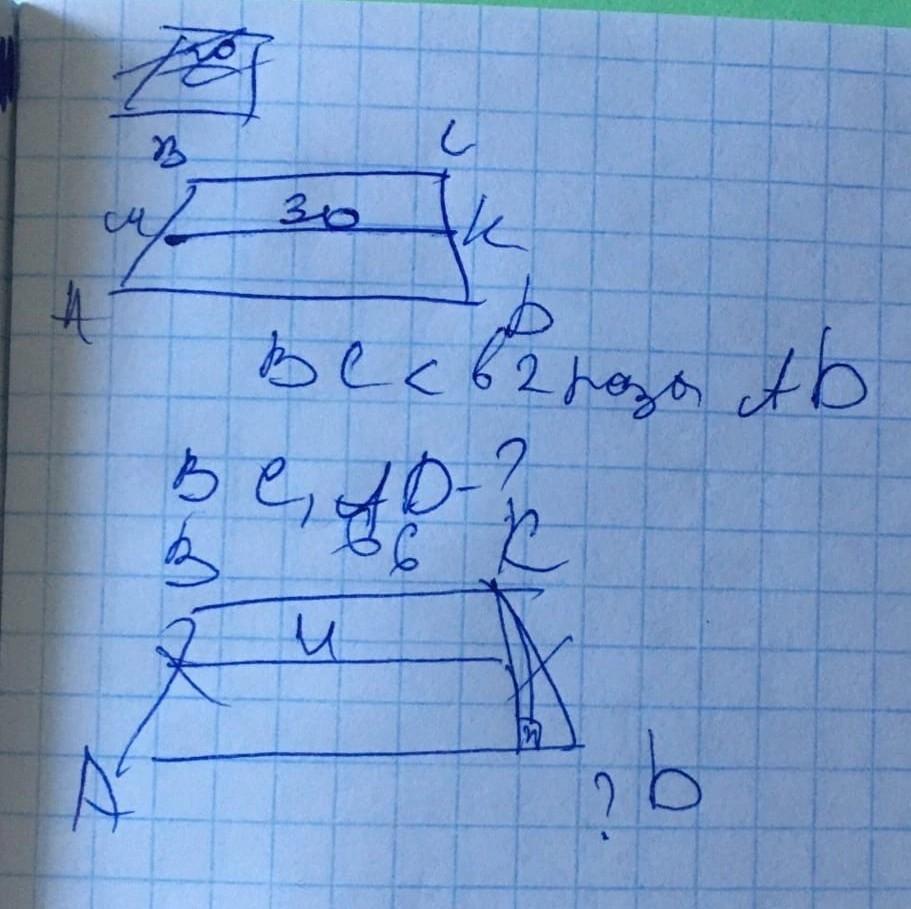 B C
M 30 K
A D
BC < в 2 раза AD
BC, AD - ?
B 6 C
4
A ? D